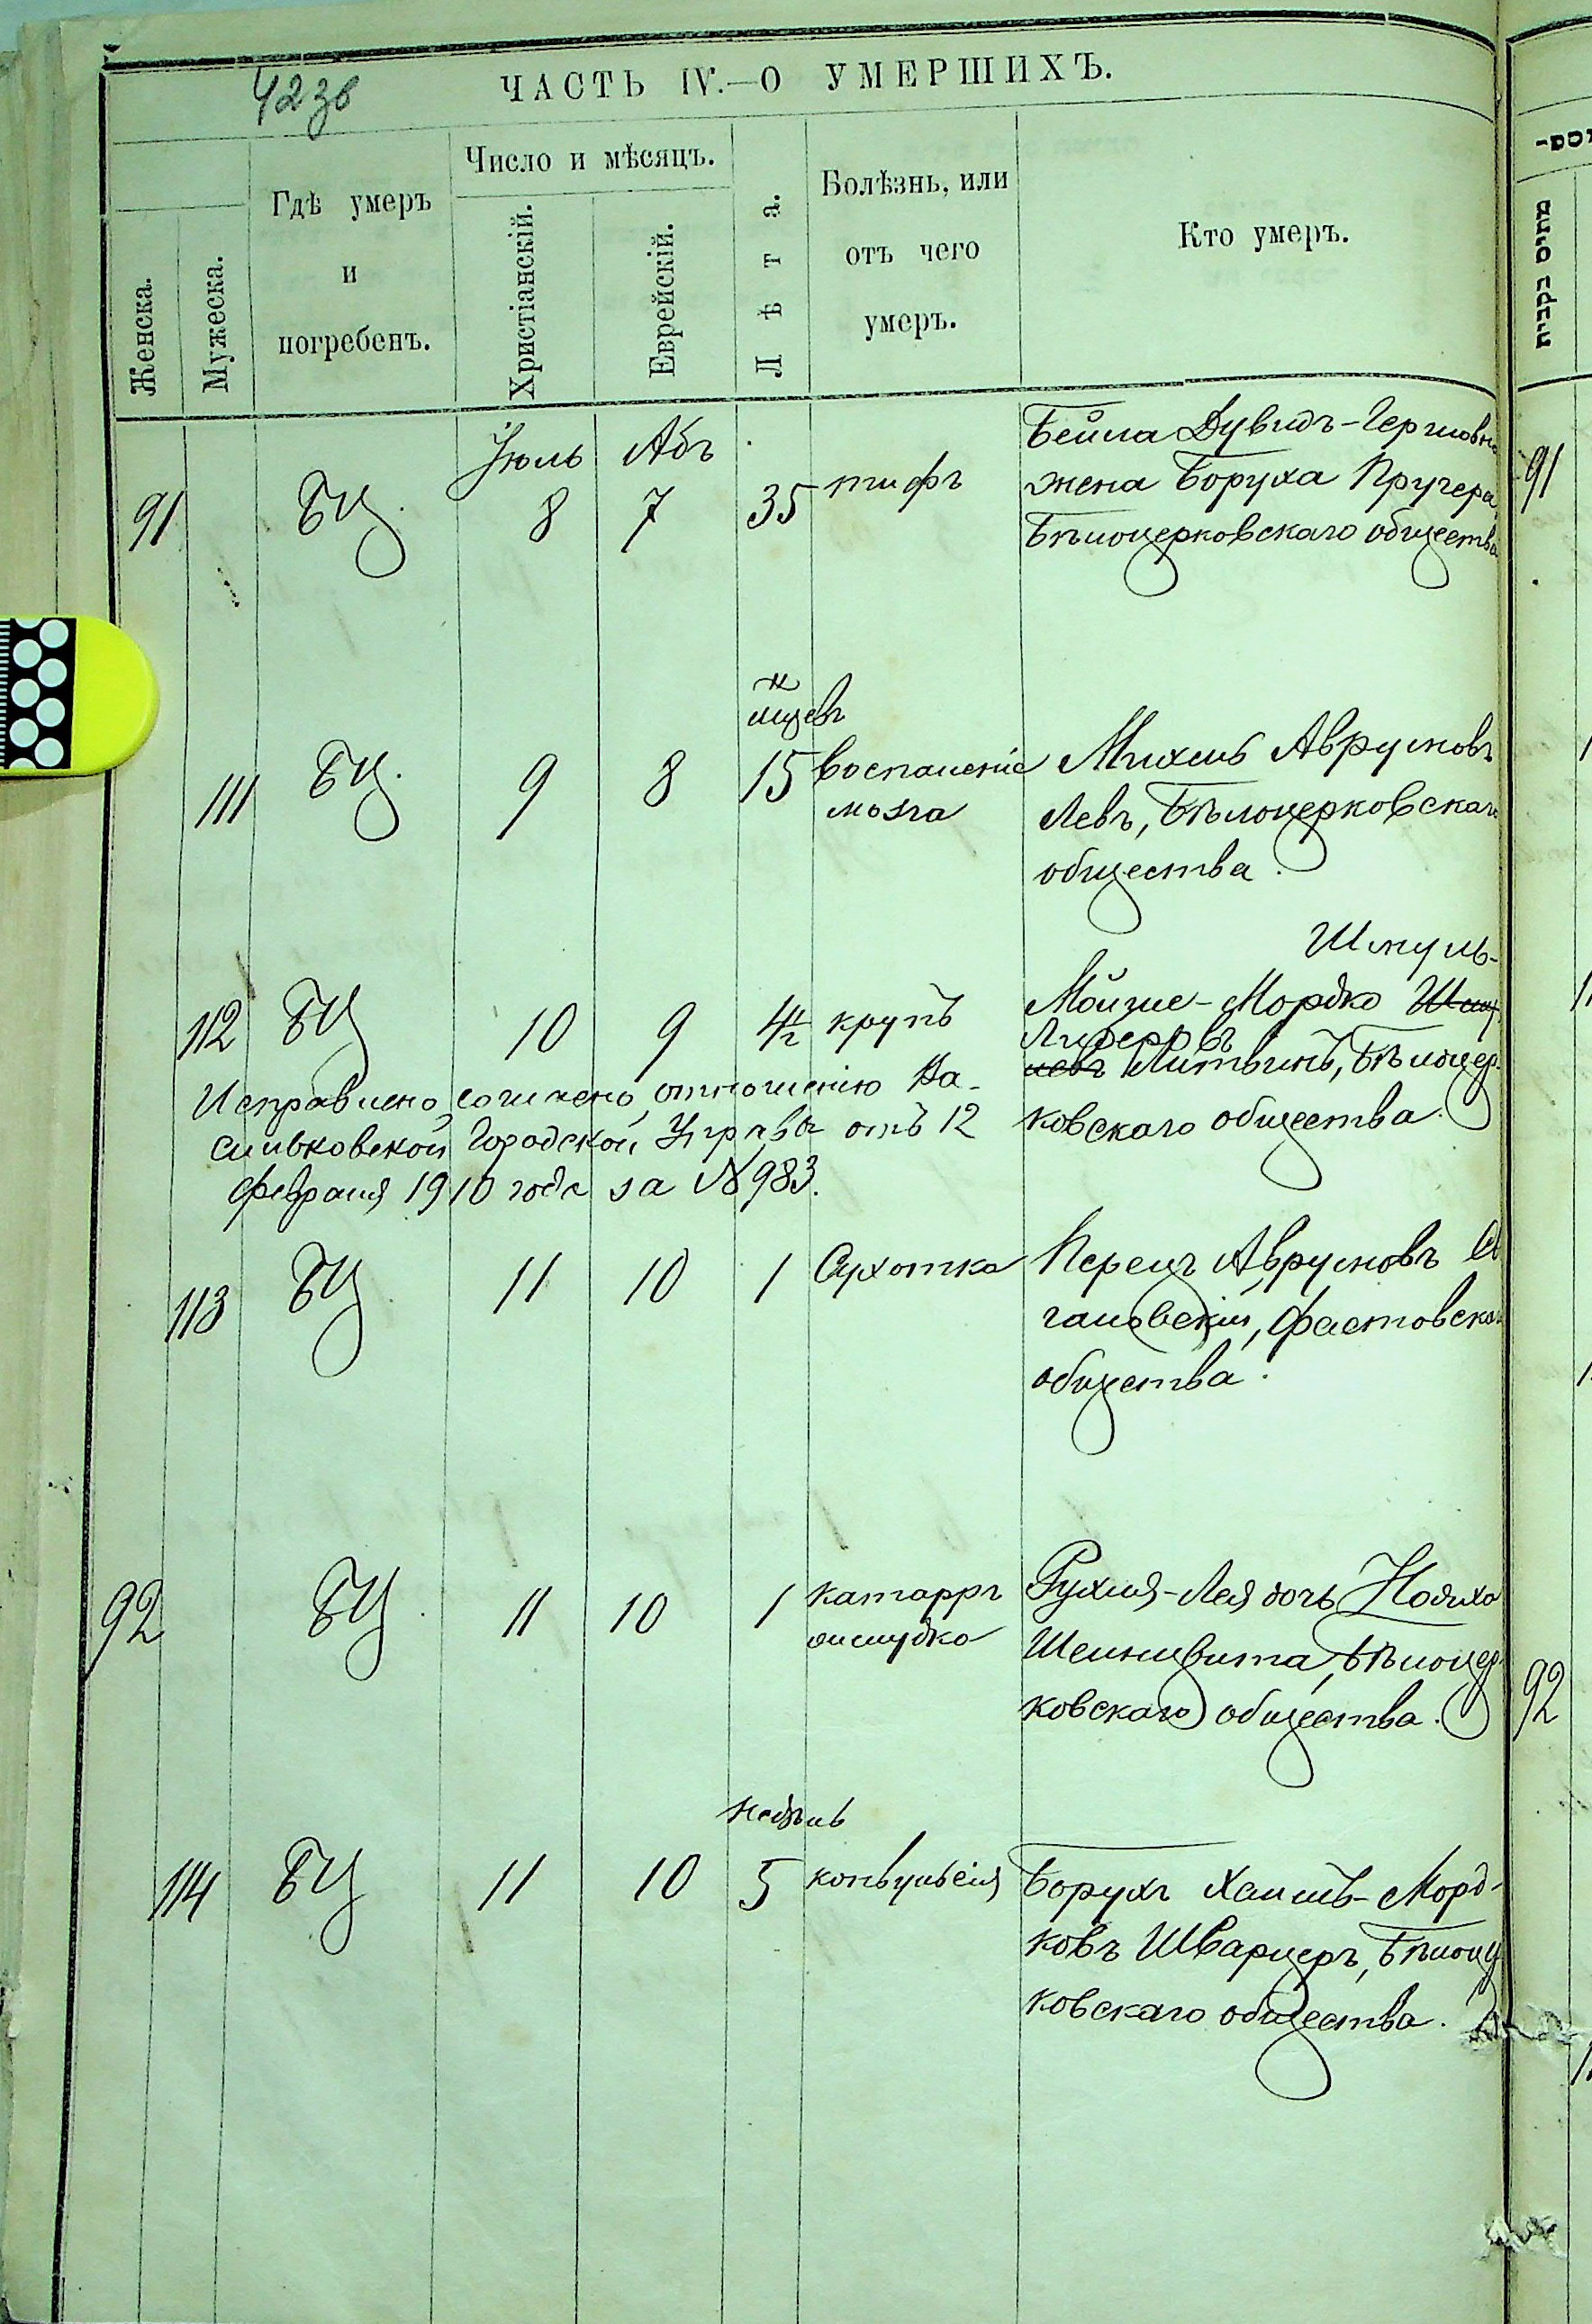 423в
ЧАСТЬ IV.—О УМЕРШИХЪ.
Женска.
Мужеска.
Гдѣ умеръ
и
погребенъ.
Число и мѣсяцъ.
Христіанскій.
Еврейскій.
Лѣта.
Болѣзнь, или
отъ чего
умеръ.
Кто умеръ.
Іюль Абъ
91 БЦ. 8 7 35 тифъ
Бейла Дувидъ-Гершовна
жена Боруха Пругера
Бѣлоцерковскаго общества
мцевъ
111 БЦ. 9 8 15 Воспаленіе
мозга
Михель Аврумовъ
Левъ, Бѣлоцерковскаго
общества.
Шмуль-
112 БЦ 10 9 4½ крупъ
Мойше-Мордко
Лидеровъ
левъ Литвинъ, Бѣлоцер-
ковскаго общества.
Исправлено согласно отношенію Ва-
сильковской Городской Управы отъ 12
февраля 1910 года за №983.
113 БЦ 11 10 1 Сухотка
Перецъ Аврумовъ
гановскій, Фастовскаго
общества.
92 БЦ. 11 10 1 катарръ
желудка
Рухля-Лея дочь
Бѣлоцер-
ковскаго общества.
недѣль
114 БЦ 11 10 5 конвульсія
Борухъ Хаимъ-Морд-
ковъ Шварцеръ, Бѣлоц
ковскаго общества.
91
92
מתים